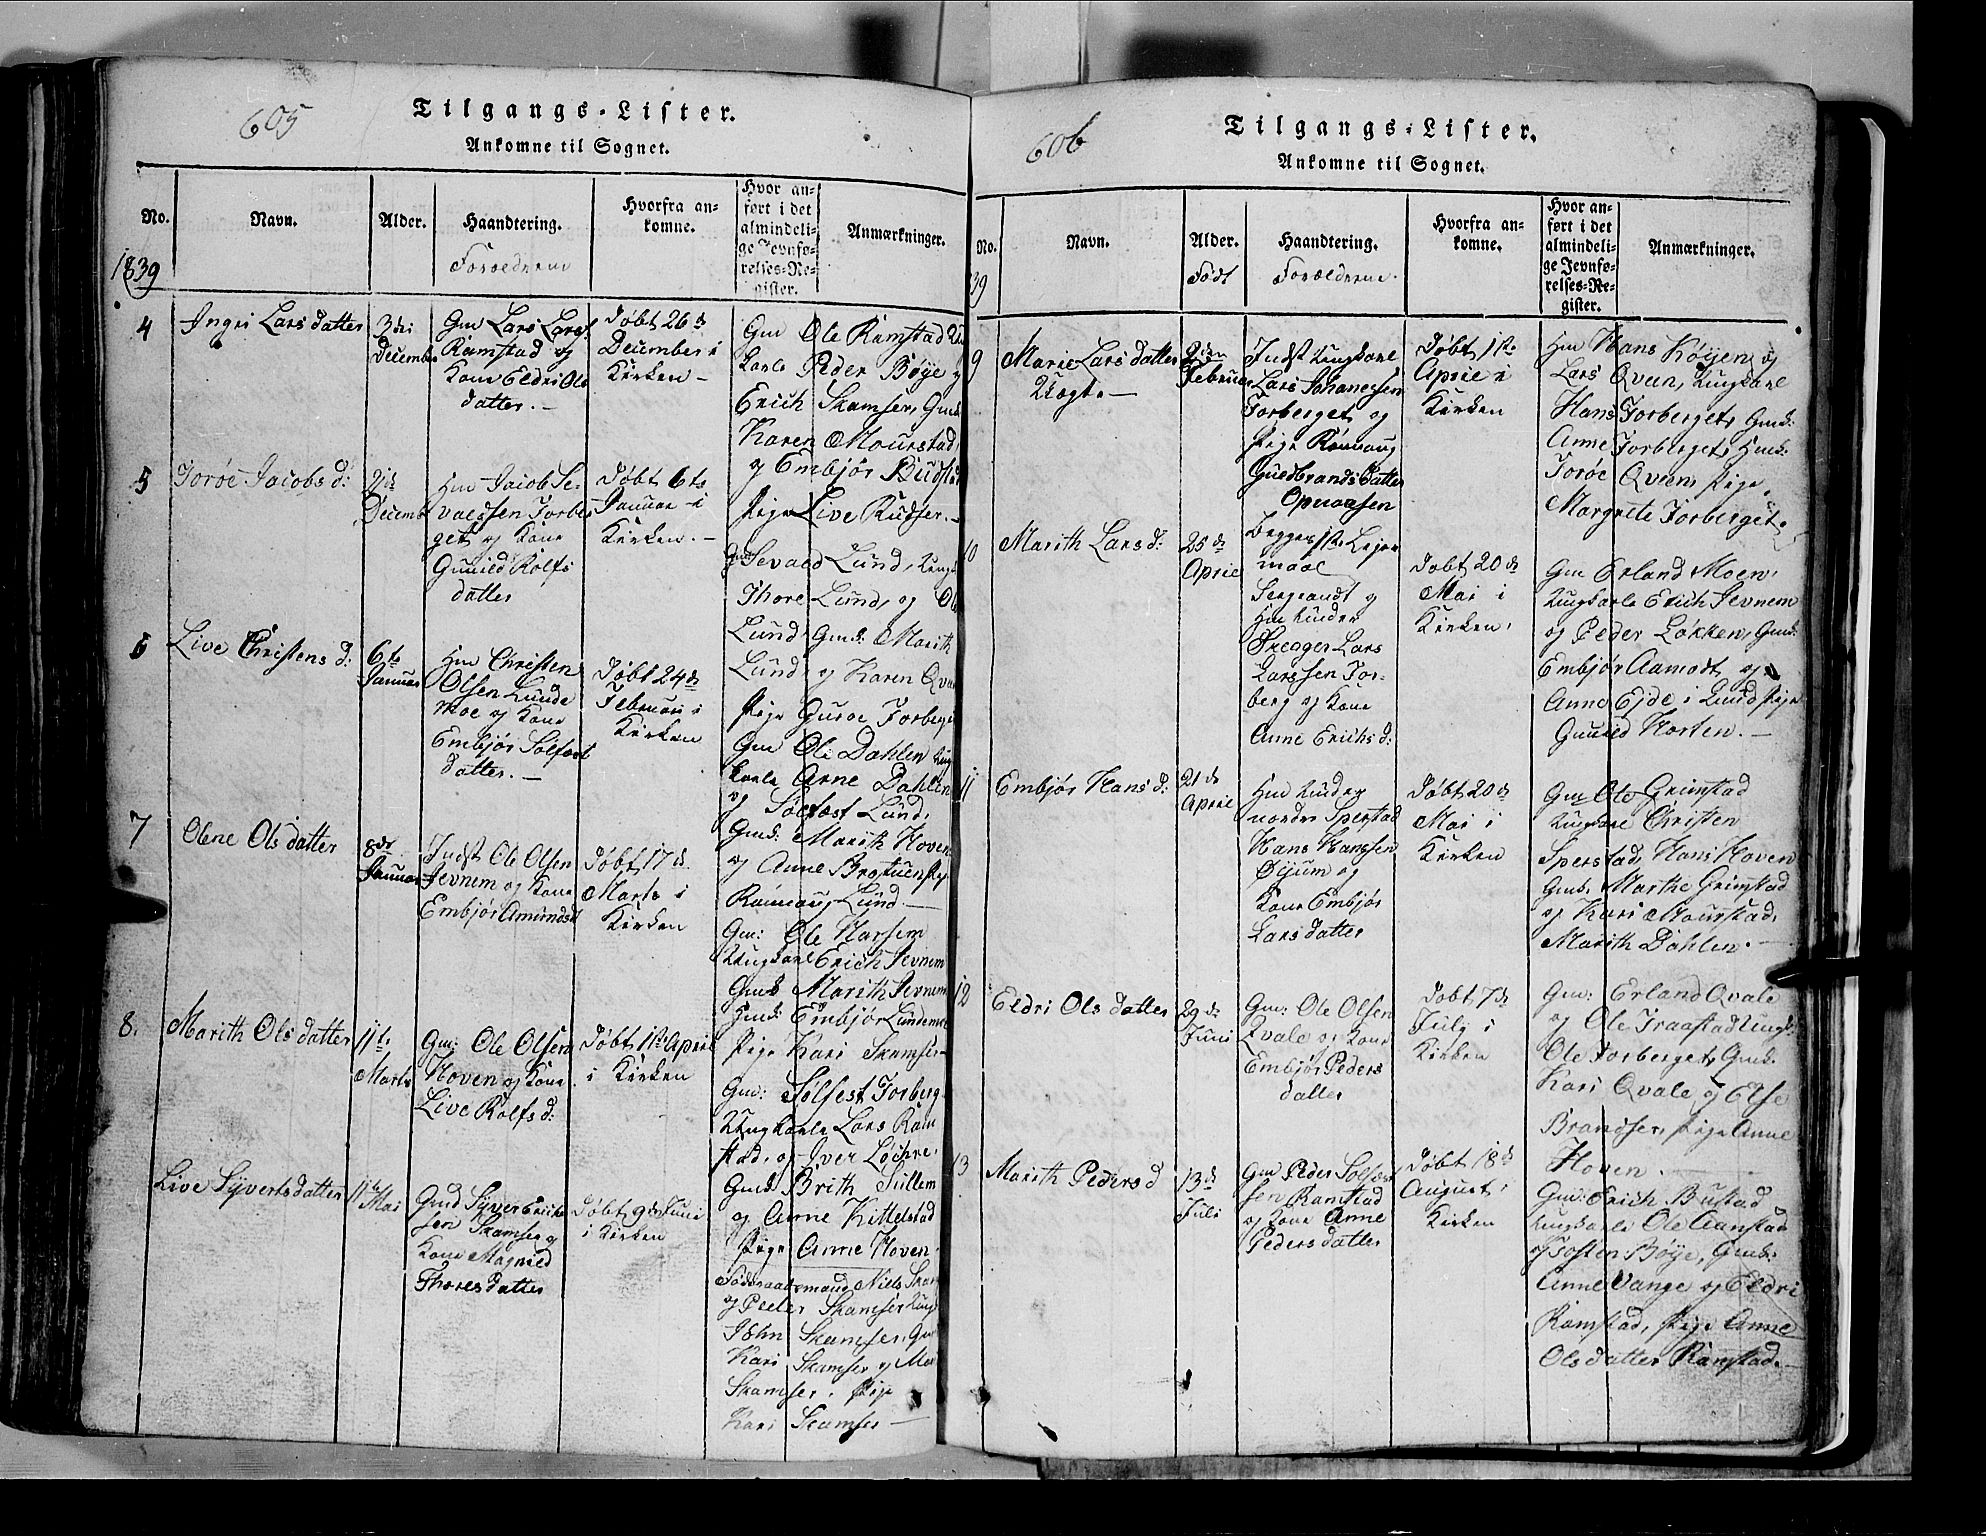 605
Tilgangs-Lister.
Ankomne til Sognet.
No.
Navn.
Alder.
Haandtering.
Forældrene
Hvorfra an-
komne.
Hvor an-
ført i det
almindeli-
ge Jevnfø-
relses-Re-
gister.
Anmærkninger.
1839
4
Ingri Lars datter
3die
December
Gm Lars Lars:
Ramstad og
Kone Eldri Ols
datter. —
Døbt 26 de
December i
Kirken —
Gm Ole Ramstad
karle Peder Bøye
Erich Skamser, Gmk:
Karen Mourstad
og Embjør Budst
Pige Live Rudser. —
5
Torøe Jacobs d:
Decemb
Hm Jacob Se-
valdsen Forber
get og Kone
Gunild Rolfs
datter
Døbt 6te
Januar i
Kirken. —
Sevald Lund, Ungk
Thore Lund, og Ol
Lund Gmk: Marith
Lund og Karen Qva
Pige Guroe Forberg
6
Live Christens d:
6te
Januar
Hm Christen
Olsen Lunde
moe og Kone
Embjør Solfæst
datter. —
Døbt 24 de
Februar i
Kirken
Gm Ole Dahlen Ung
karle Arne Dahlen
og Solfæst Lund,
Gmk: Marith Hoven
og Anne Brostuen, Pige
Rønnaug Lund —
7
Olene Ols datter
8de
Januar
Indst Ole Olsen
Jevnem og Kone
Embjør Amunds d
Døbt 17 de
Marts i
Kirken
Gm: Ole Harsem
Ungkarl Erich Jevnem
Gmk Marith Jevnem
Hmk: Embjør Lundemoe
Pige Kari Skamser —
8.
Marith Ols datter
11te
Marts
Gm: Ole Olsen
Hoven og Kone
Live Rolfs d:
Døbt 1ste April
i Kirken
Gm: Solfest Forberg
Ungkarle Lars Ram
stad, og Iver Løchre,
Gmk: Brith Sillem
og Anne Kittelstad
Pige Anne Hoven.
Live Syverts datter
11te
Mai
Gmd Syver Erich
sen Skamser og
Kone Magnild
Thores datter
Døbt 9 de Juni
i Kirken
Føderaadsmand Niels Skam
og Peder Skamser Ungk
John Skamser, Gmk
Kari Skamser og Mar
Skamser. Pige
Kari Skamser —
606
Tilgangs-Lister.
Ankomne til Sognet.
No.
Navn.
Alder.
Født
Haandtering.
Forældrene
Hvorfra an-
komne.
Hvor an-
ført i det
almindeli-
ge Jevnfø-
relses-Re-
gister.
Anmærkninger.
39
9
Marie Lars datter
Uægte. —
2den
Februar
Indst Ungkarl
Lars Johanessen
Forberget og
Pige Rønnaug
Guldbrands datter
Opnaasen
Begges 1ste Leier
maal
Døbt 1ste
April i
Kirken
Hm Hans Høyen og
Lars Qveen, Ungkarl
Hans Forberget, Gmk:
Anne Forberget, Hmk:
Torøe Qveen, Pige,
Margrete Forberget.
10
Marith Lars d:
25 de
April
Sergeandt og
Hm under
Preager Lars
Larssen For-
berg og Kone
Anne Erichs d:
Døbt 20 de
Mai i
Kirken,
Gm Erland Moen,
Ungkarle Erich Jevnem
og Peder Løkken, Gmk:
Embjør Aamodt og
Anne Eide i Lund Pige
Gunild Horten. —
11
Embjør Hans d:
21 de
April
Hm under
nordre Sperstad
Hans Hanssen
Øijum og
Kone Embjør
Lars datter
Døbt 20 de
Mai i
Kirken
Gm Ole Grimstad
Ungkarl Christen
Sperstad, Hans Hoven
Gmk. Marthe Grimstad
og Kari Mourstad,
Marith Dahlen. —
12
Eldri Ols datter
29 de
Juni
Gm: Ole Olsen
Qvale og Kone
Embjør Peders
datter
Døbt 7 de
July i
Kirken
Gm: Erland Qvale
og Ole Traastad Ungk:
Ole Forberget, Gmk:
Kari Qvale og Else
Brandser, Pige Anne
Hoven —
13
Marith Peders d
13 de
Juli
Gm Peder Solfæs
sen Ramstad
og Kone Anne
Peders datter
Døbt 18 de
August i
Kirken
Gm: Erich Bustad
Ungkarle Ole Aanstad
og Tosten Bøye, Gmk:
Anne Vange og Eldri
Ramstad, Pige Anne
Ols datter Ramstad. —